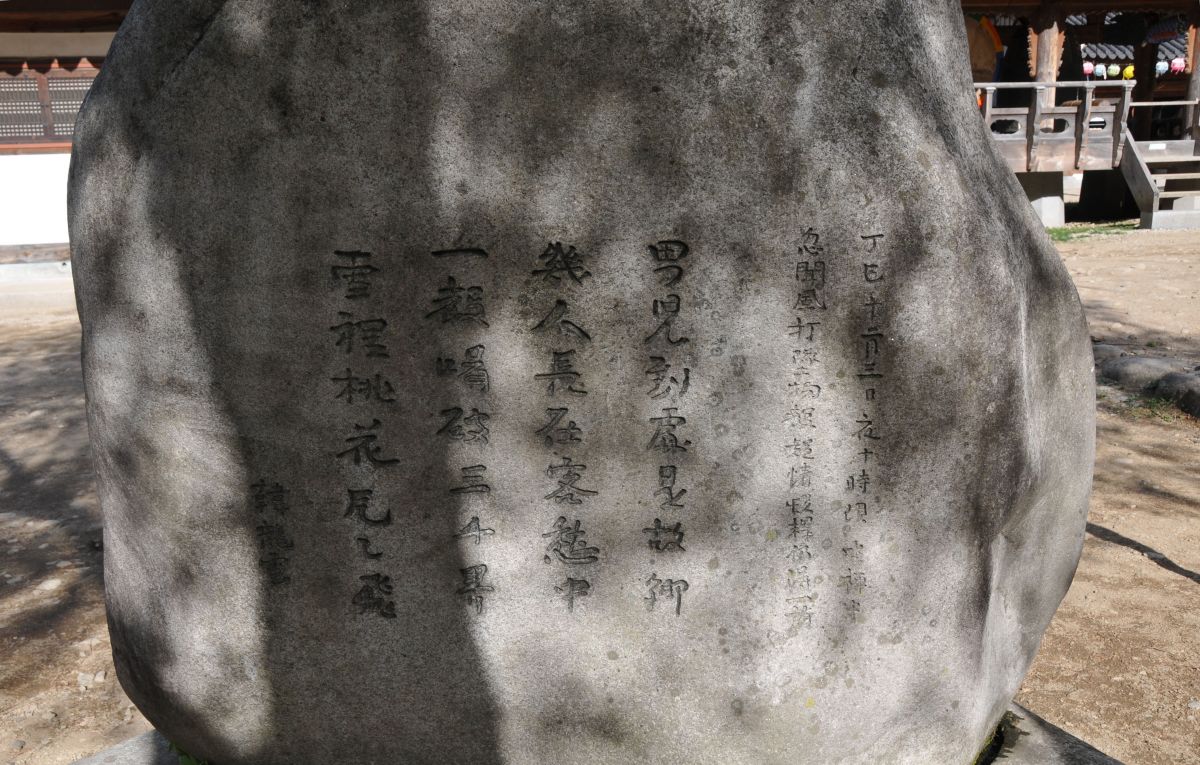 丁巳十二月三日夜十時頃坐禪中
忽聞風打墜物聲疑情頓釋仍得一詩
男兒到處是故鄕
幾人長在客愁中
一聲喝破三千界
雪裡桃花片々飛
韓龍雲